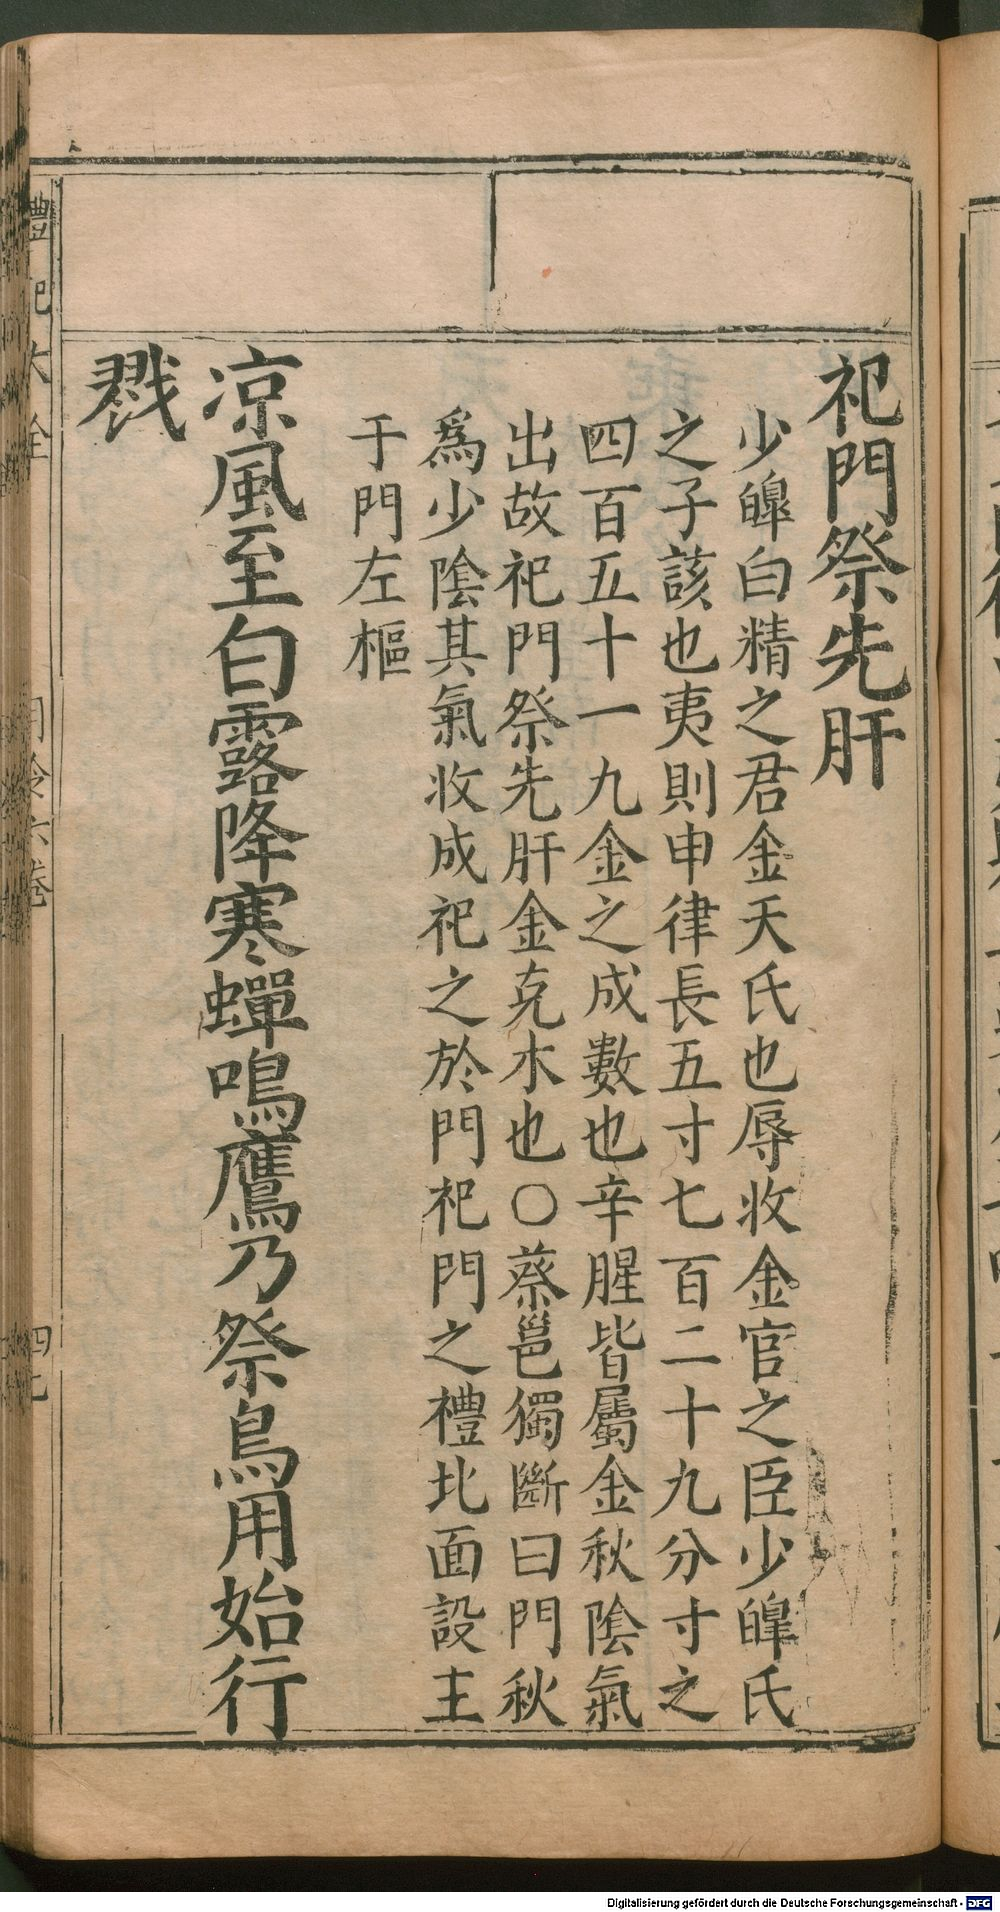 祀門祭先肝
少皥白精之君金天氏也辱收金官之臣少皥氏
之子該也夷則申律長五寸七百二十九分寸之
四百五十一九金之成數也辛腥皆屬金秋陰氣
出故祀門祭先肝金克木也○蔡邕獨斷曰門秋
爲少陰其氣收成祀之於門祀門之禮北面設主
于門左樞
凉風至白露降寒蟬鳴鷹乃祭鳥用始行
戮
禮記大全 月令六卷 四七
Digitalisierung gefördert durch die Deutsche Forschungsgemeinschaft - DFG